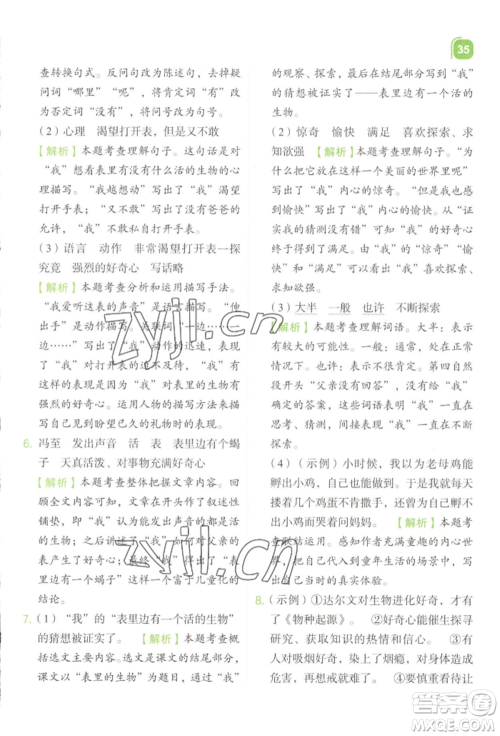 35
查转换句式。反问句改为陈述句，去掉疑
问词“哪里”“呢”，将肯定词语“有”改
为否定词语“没有”，并将问号改为句号。
（2）心理　渴望打开表，但又不敢
【解析】本题考查理解句子。这句话是对
“我”想看表里边有一个活的生物的心理
描写。“我越想动”写出了“我”渴望
打开手表；“又不敢”写出没有父亲的
允许，“我”不敢打开表。
（3）语言　动作　非常渴望打开表一探
究竟　强烈的好奇心　写话略
【解析】本题考查分析和运用描写手法。
“我爱听这表的声音”是语言描写。“伸
出手”是动作描写。“一边说一边”写
出了“我”动作的迅速，表现了“我”
渴望打开表，体现了“我”对表里的生物有
强烈的好奇心。运用人物的描写方法写出
自己到盼望已久的日子时的表现即可。
6. 冯至　发出声音　活　表　表里边有个蝎
子　天真活泼、对事物充满好奇心
【解析】本题考查整体把握文章内容。回
顾全文内容可知，文章在开始作了叙述性
铺垫，即“我”认为能发出声音的都是活
的生物，因此后文写了“我”对父亲的
表产生了好奇心；最终“我”得出“表
里边有一个蝎子”这一富于儿童化的
结论。
7. （1）“我”的“表里边有一个活的生物”
的猜想被证实了。【解析】本题考查概括
选文内容。选文是课文的结尾部分，
课文以“表里的生物”为题，写了“我”
的观察、探索，最后在结尾部分写到“我”
的猜想被证实了——表里边有一个活的
生物。
（2）惊奇　愉快　满足　喜欢探索、求
知欲强【解析】本题考查理解句子。“为
什么把它放在一个美丽的世界里呢”
写出了“我”内心的惊奇。“但也感
到愉快”写出了“我”内心的愉快。“证
实我的猜测没有错”写出“我”的好奇
心终于得到了满足。“我”的“惊奇”“愉
快”“满足”，体现了“我”喜欢探索、
求知欲强的特点。
（3）大半　一般　也许　不断探索
【解析】本题考查理解词语。大半：表示
有较大的可能性。一般：表示通常的
情况。也许：表示不很肯定。选文第四自
然段开头“父亲没有回答”，“我”没有
确定的答案，所以这些词语表示“我”
的想法、猜测，体现了“我”不断探索
的精神。
（4）（示例）小时候，我以为老母鸡能
孵出小鸡，我也能孵出来，于是我每天
搂着几个鸡蛋不肯撒手，疑惑为什么自己孵不
出小鸡而哭闹着问妈妈。【解析】本题考
查联结运用。感知作者充满童趣的内心
世界，这样就很容易联想到童年生活的
场景，叙写真实体验即可。
8. （示例）①达尔文对生物进化好奇，才有
了《物种起源》。②好奇心能催生探寻
研究、获取知识的热情和信心。③有
人对吸烟好奇，于是染上了烟瘾，造成
危害，再难戒掉。④要慎重看待好奇
zyjl.cn
zyjl.cn
答案圈
MXQE.COM